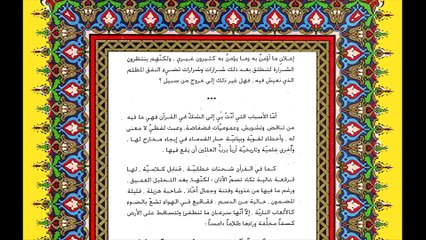 إعلان ما أؤمن به وما يؤمن به كثيرون غيري ، ولكنّهم ينتظرون
الشرارة لتنطلق بعد ذلك شرارات وشرارات تضيء النفق المظلم
الذي نعيش فيه . فهل غير ذلك إلى خروج من سبيل ؟
***
أمّا الأسباب التي أدّت بي إلى الشك في القرآن فهي ما فيه
من تناقض وتشويش وعموميات فضفاضة، وعبث لفظيّ لا معنى
له ، وأخطاء لغوية وبيانية حار القدماء في إيجاد مخارج لها ،
وأخرى علمية وتاريخية أربأ بربّ العالمين أن يقع فيها .
كما في القرآن شحنات خطابيّة ، قنابل كلاميّة ، لها
قرقعة عالية تكاد تصمّ الآذان ، لكنّها، بعد التحليل العميق ،
ورغم ما فيها من عذوبة وفتنة وجمال أخّاذ ، شاحبة هزيلة ، قليلة
المضمون ، خالية من الدسم . ففاقيع في الهواء تشعّ بالضوء
كالألعاب الناريّة، إلاّ أنّها سرعان ما تنطفئ وتتساقط على الأرض
كسفاً مخلّفة وراءها ظلاماً دامساً .